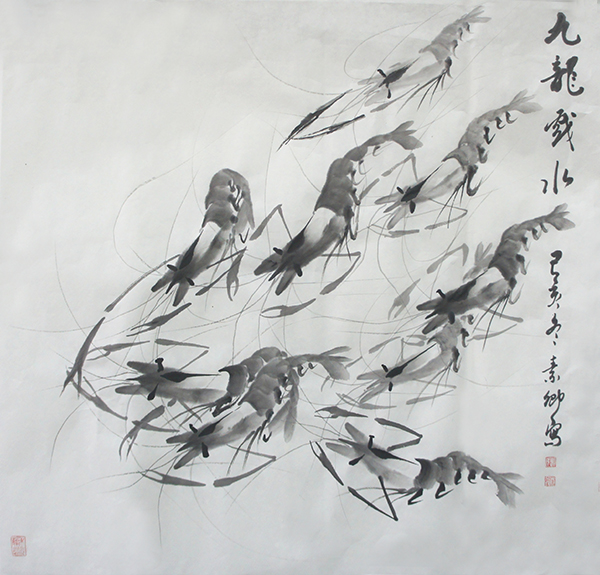 九龍戏水
己亥冬素卿寫